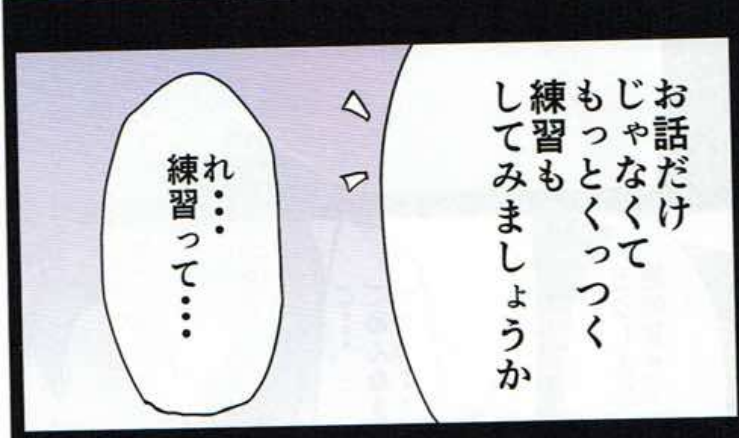 お話だけ
じゃなくて
もっとくっつく
練習も
してみましょうか
れ・・・
練習って・・・